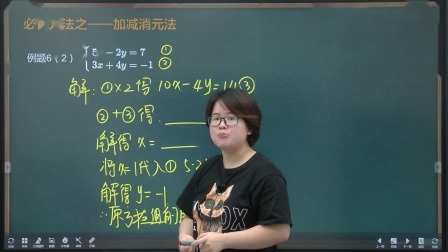 必 法之——加减消元法
例题6（2） - 2y = 7 ①
3x + 4y = -1 ②
解：①×2得 10x-4y=14③
②+③得：
解得 x =
将x=1代入① 5-2
解得 y=-1
∴原方程组的